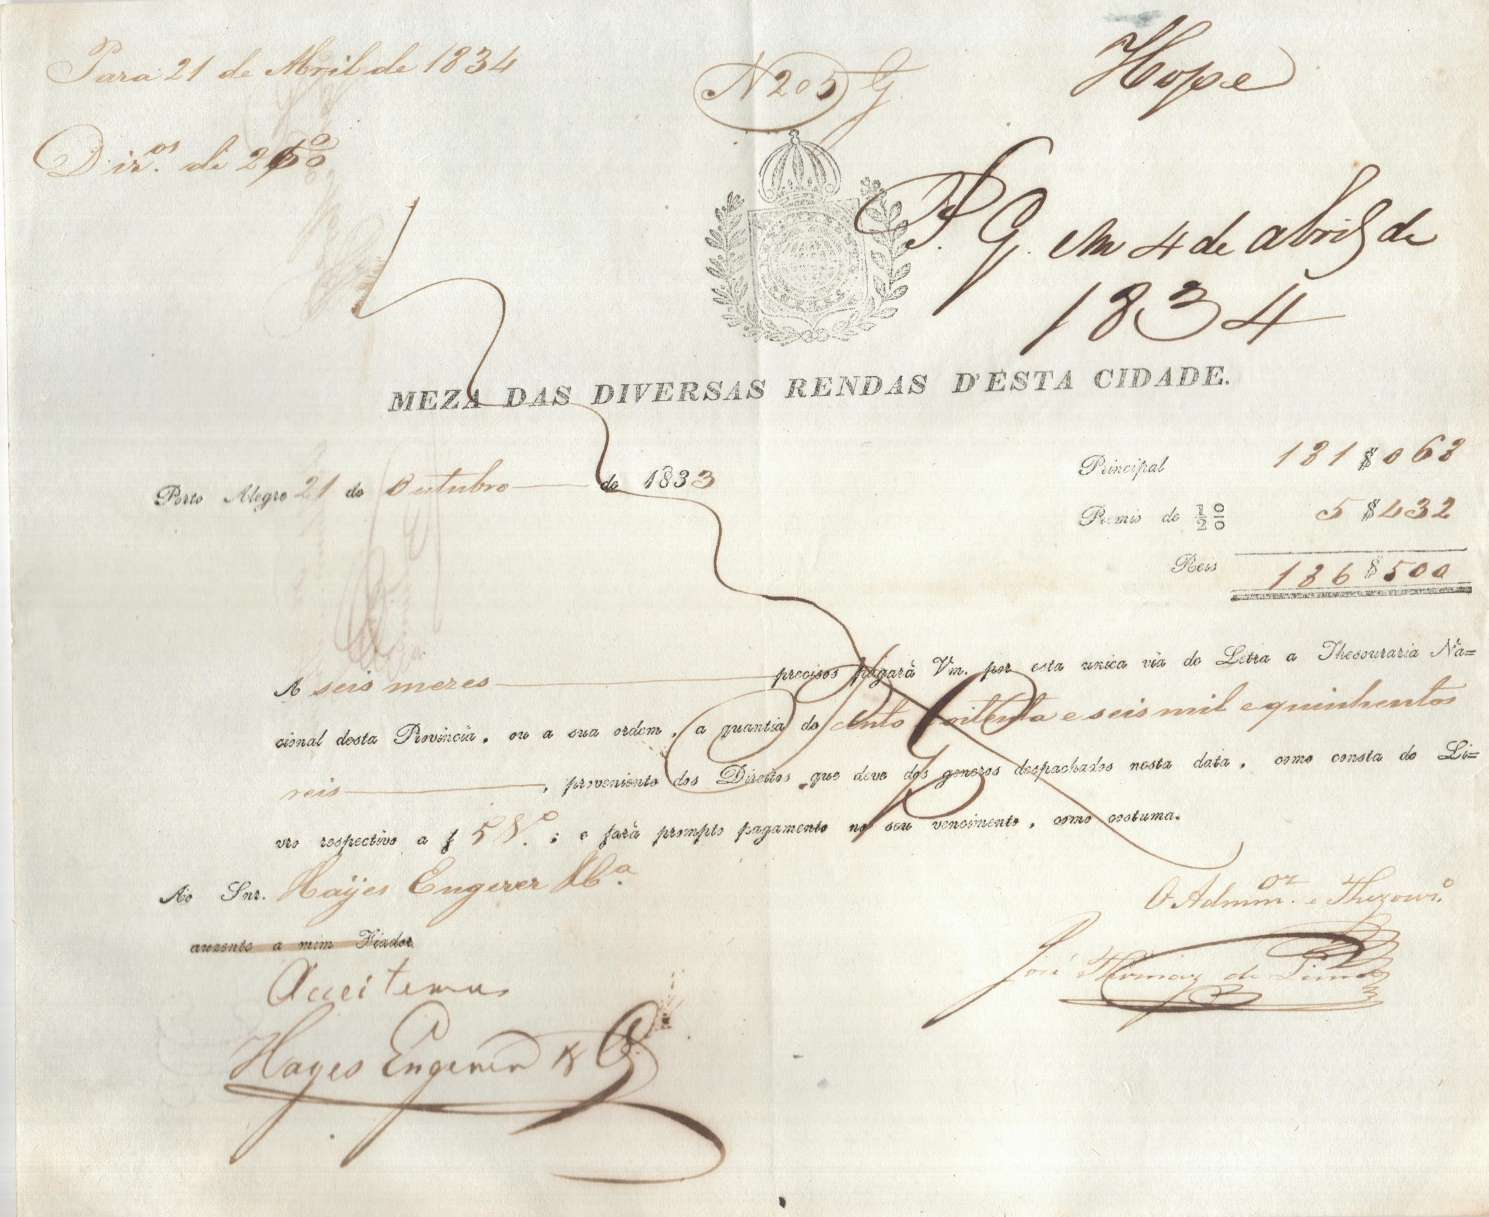 Para 21 de Abril de 1834
N 205 G
Hope
Dir.os de
P. G. em 4 de abril de
1834
MEZA DAS DIVERSAS RENDAS D'ESTA CIDADE.
Porto Alegre 21 de Outubro de 1833
Principal 181$068
Premio de 1/2 0/0 5$432
Reis 186$500
A seis mezes precisos pagará Vm. por esta unica via de Letra a Thesouraria Na=
cional desta Provincia, ou a sua ordem, a quantia de cento e oitenta e seis mil e quinhentos
reis, proveniente dos Direitos que deve dos generos despachados nesta data, como consta do Li=
vro respectivo a f 5 V.o; e fará prompto pagamento no seu vencimento, como costuma.
Ao Snr. Hayes Engerer & Ca.
auzente a mim Fiador
O Admin.or e Thezour.o
José Thomaz de Lima
Aceitamos
Hayes Engerer & C